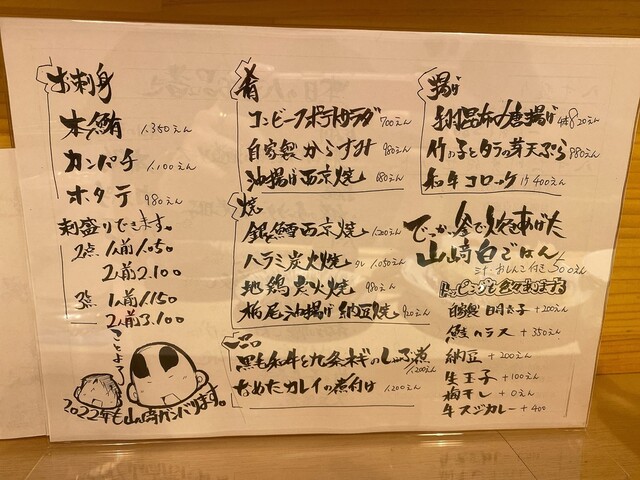 お刺身
本鮪 1.350えん
カンパチ 1.100えん
ホタテ 980えん
刺盛りできます。
2点 1人前1.050
2人前2.100
3点 1人前1.150
2人前3.100
ことよろ
2022年も山﨑ガンバります。
肴
コンビーフポテトサラダ 700えん
自家製からすみ 980えん
油揚げ西京焼 680えん
焼
銀鱈西京焼 1.200えん
ハラミ炭火焼 タレ 1.050えん
地鶏炭火焼 980えん
栃尾油揚げ納豆焼 920えん
一品
黒毛和牛と九条ネギのしゃぶ煮 1.200えん
なめたカレイの煮付け 1.200えん
揚げ
利尻昆布の唐揚げ 820えん
竹の子とタラの芽天ぷら 980えん
和牛コロッケ 1ケ400えん
でっかい釜で炊きあげた
山﨑白ごはん
ミニ汁・おしんこ付き 500えん
トッピングも各々あります
自家製明太子 +200えん
鮭ハラス +350えん
納豆 +200えん
生玉子 +100えん
梅干し +0えん
牛スジカレー +400